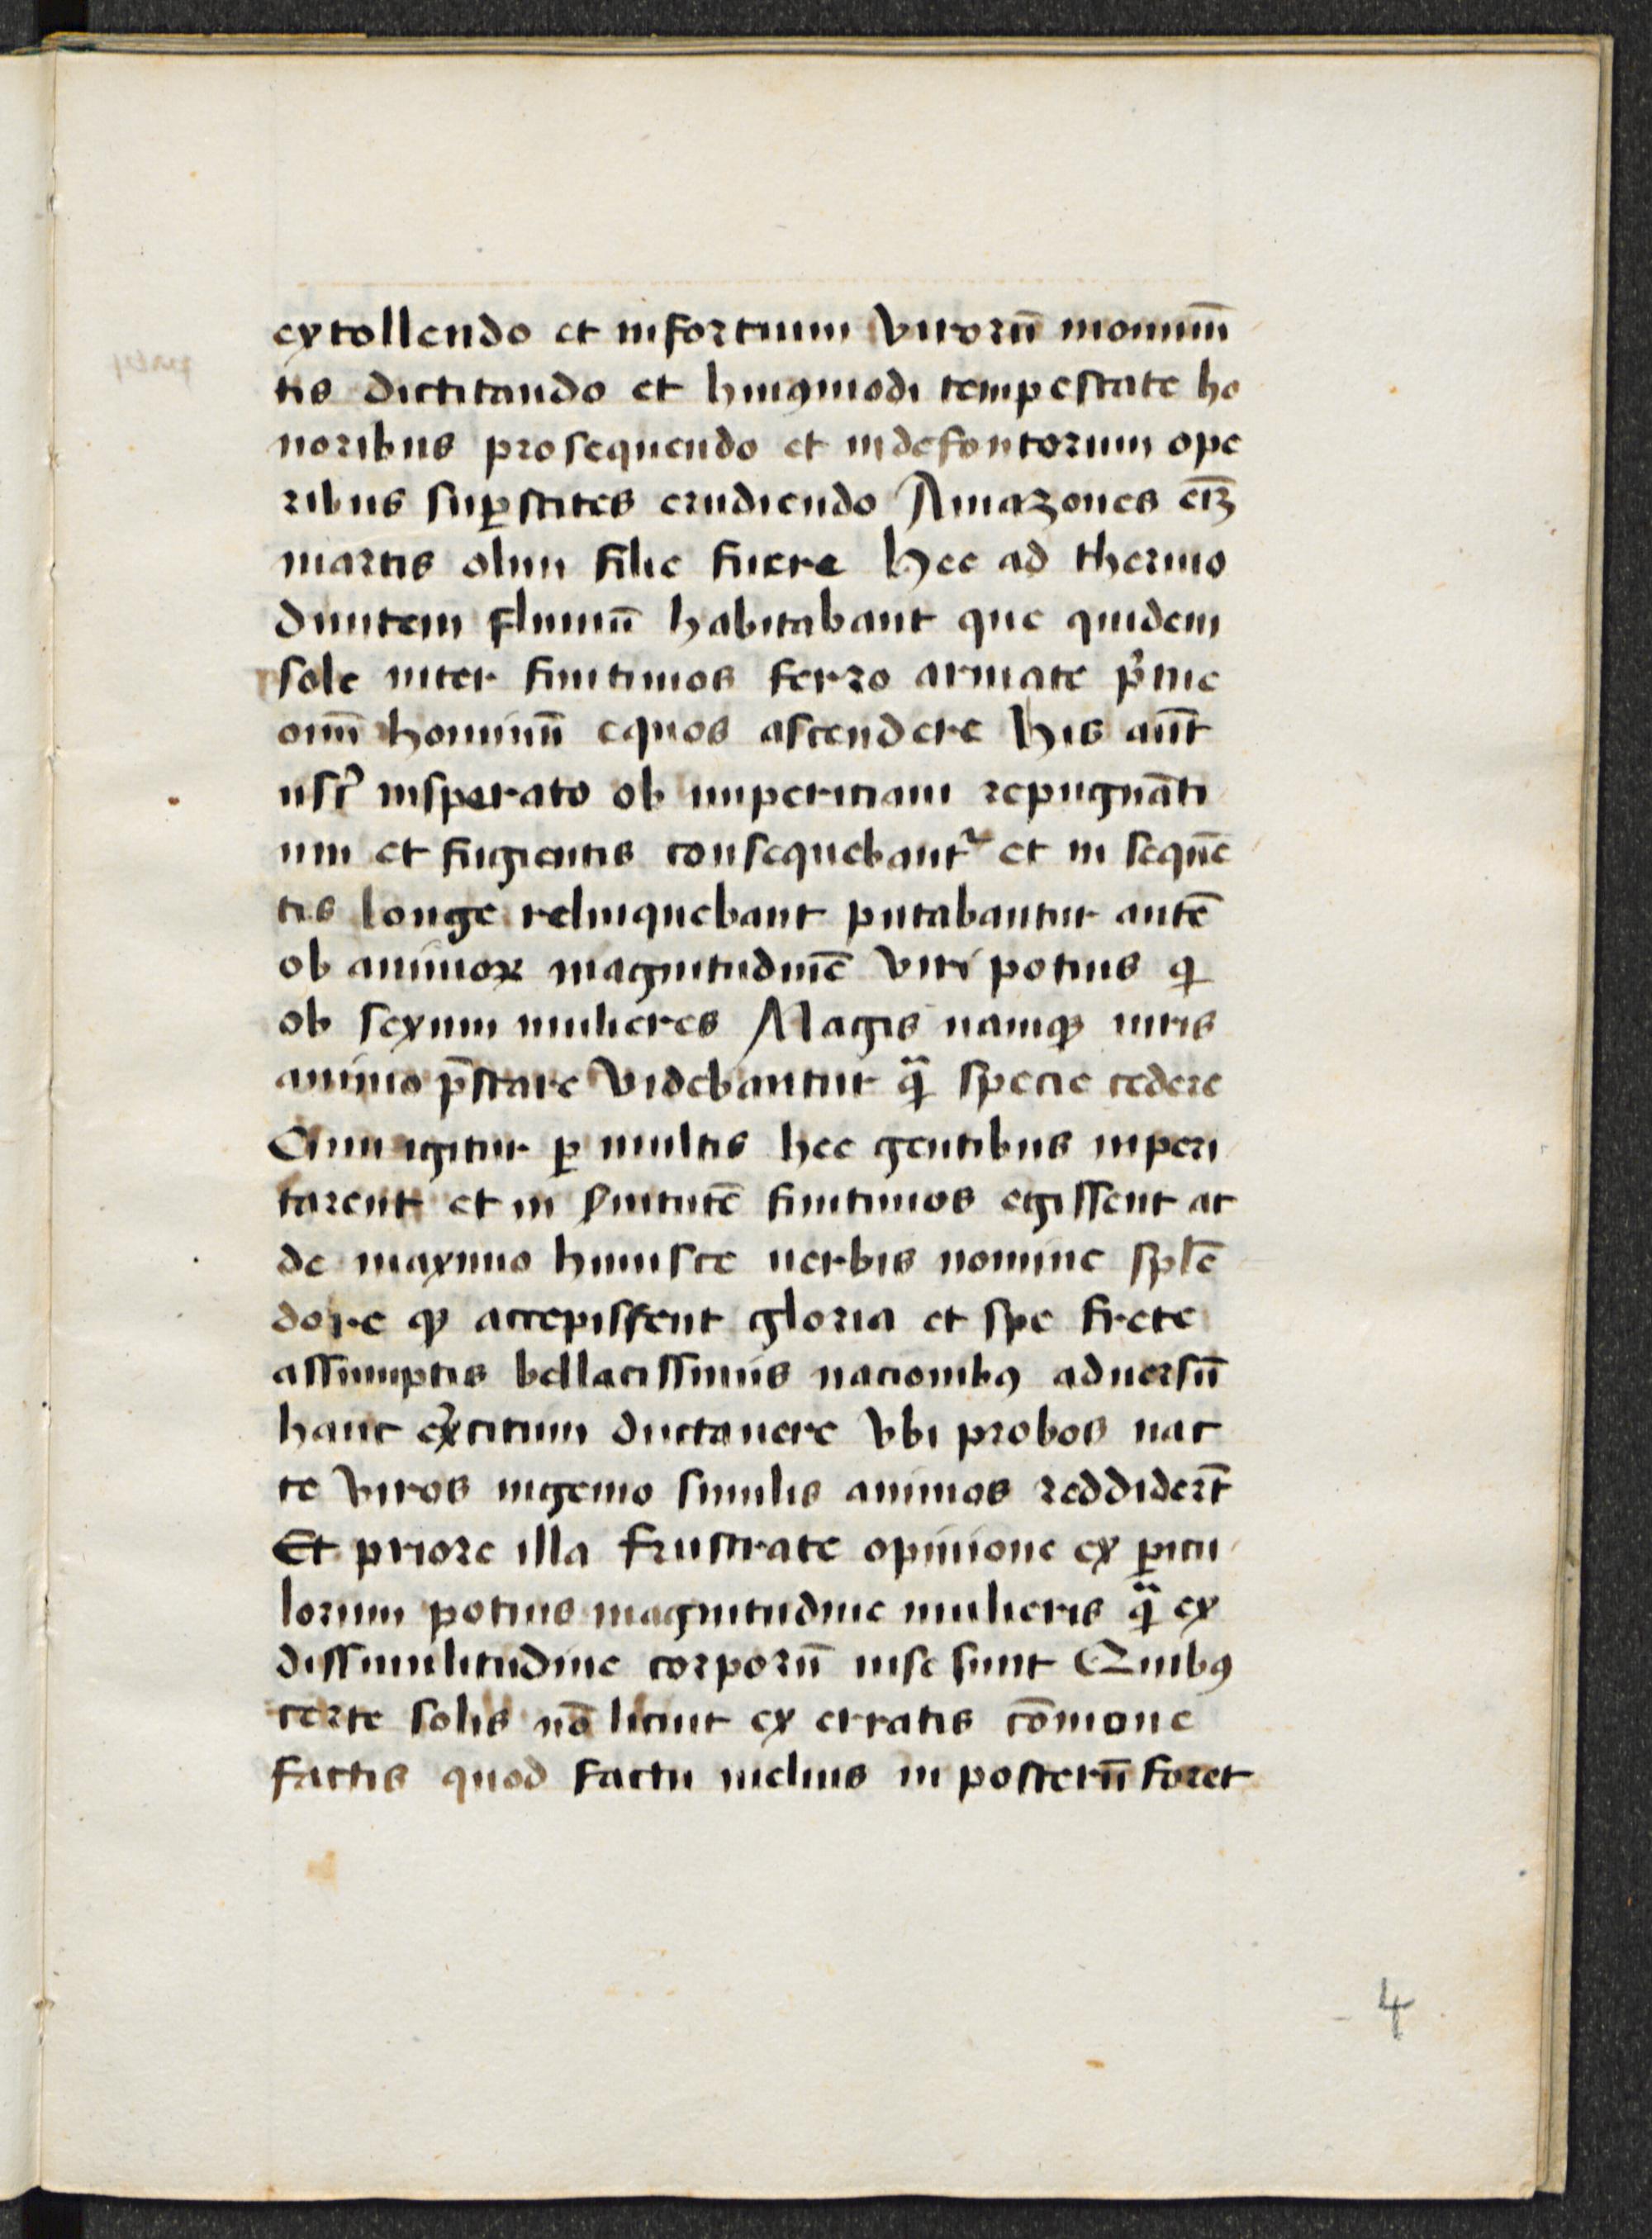 extollendo et in fortium virorū monumē
tis dictitando et huiꝯmodi tempestate ho
noribus prosequendo et in defontorum ope
ribus suꝑstites erudiendo Amazones eīꝫ
martis olim filie fuere hee ad thermo
duntem flumiū habitabant que quidem
sole inter finitimos ferro armate p̓me
oīm hominū equos ascendere his aūt
insperato ob imperitiam repugnāti
um et fugientis consequebant᷑ et in sequē
tis longe relinquebant putabantur autē
ob animoꝝ magnitudinē viri potius ꝙ
ob sexum mulieres Magis namqꝫ uiris
animo p̄stare videbantur q̄ꝫ specie cedere
Cum igitur ꝑ multis hee gentibus inperi
tarent et in s̓uitutē finitimos egissent at
de maximo huiusce uerbis nomine splē
dore qꝫ accepissent gloria et spe frete
assumptis bellacissimis nacionibꝯ aduersū
hanc ex̓citum ductauere vbi probos nac
te viros ingenio similis animos reddiderūt
Et priore illa frustrate opinione ex ꝑicu
lorum potius magnitudine mulieris q̄ꝫ ex
dissimilitudine corporū uise sunt Quibꝯ
certe solis nō licuit ex erratis cōmone
factis quod factu melius in posterū foret
4